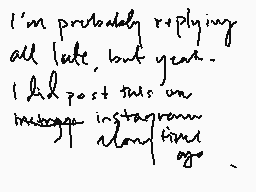 I'm probably replying
all late, but yeah.
I did post this on
instagram
along time
ago